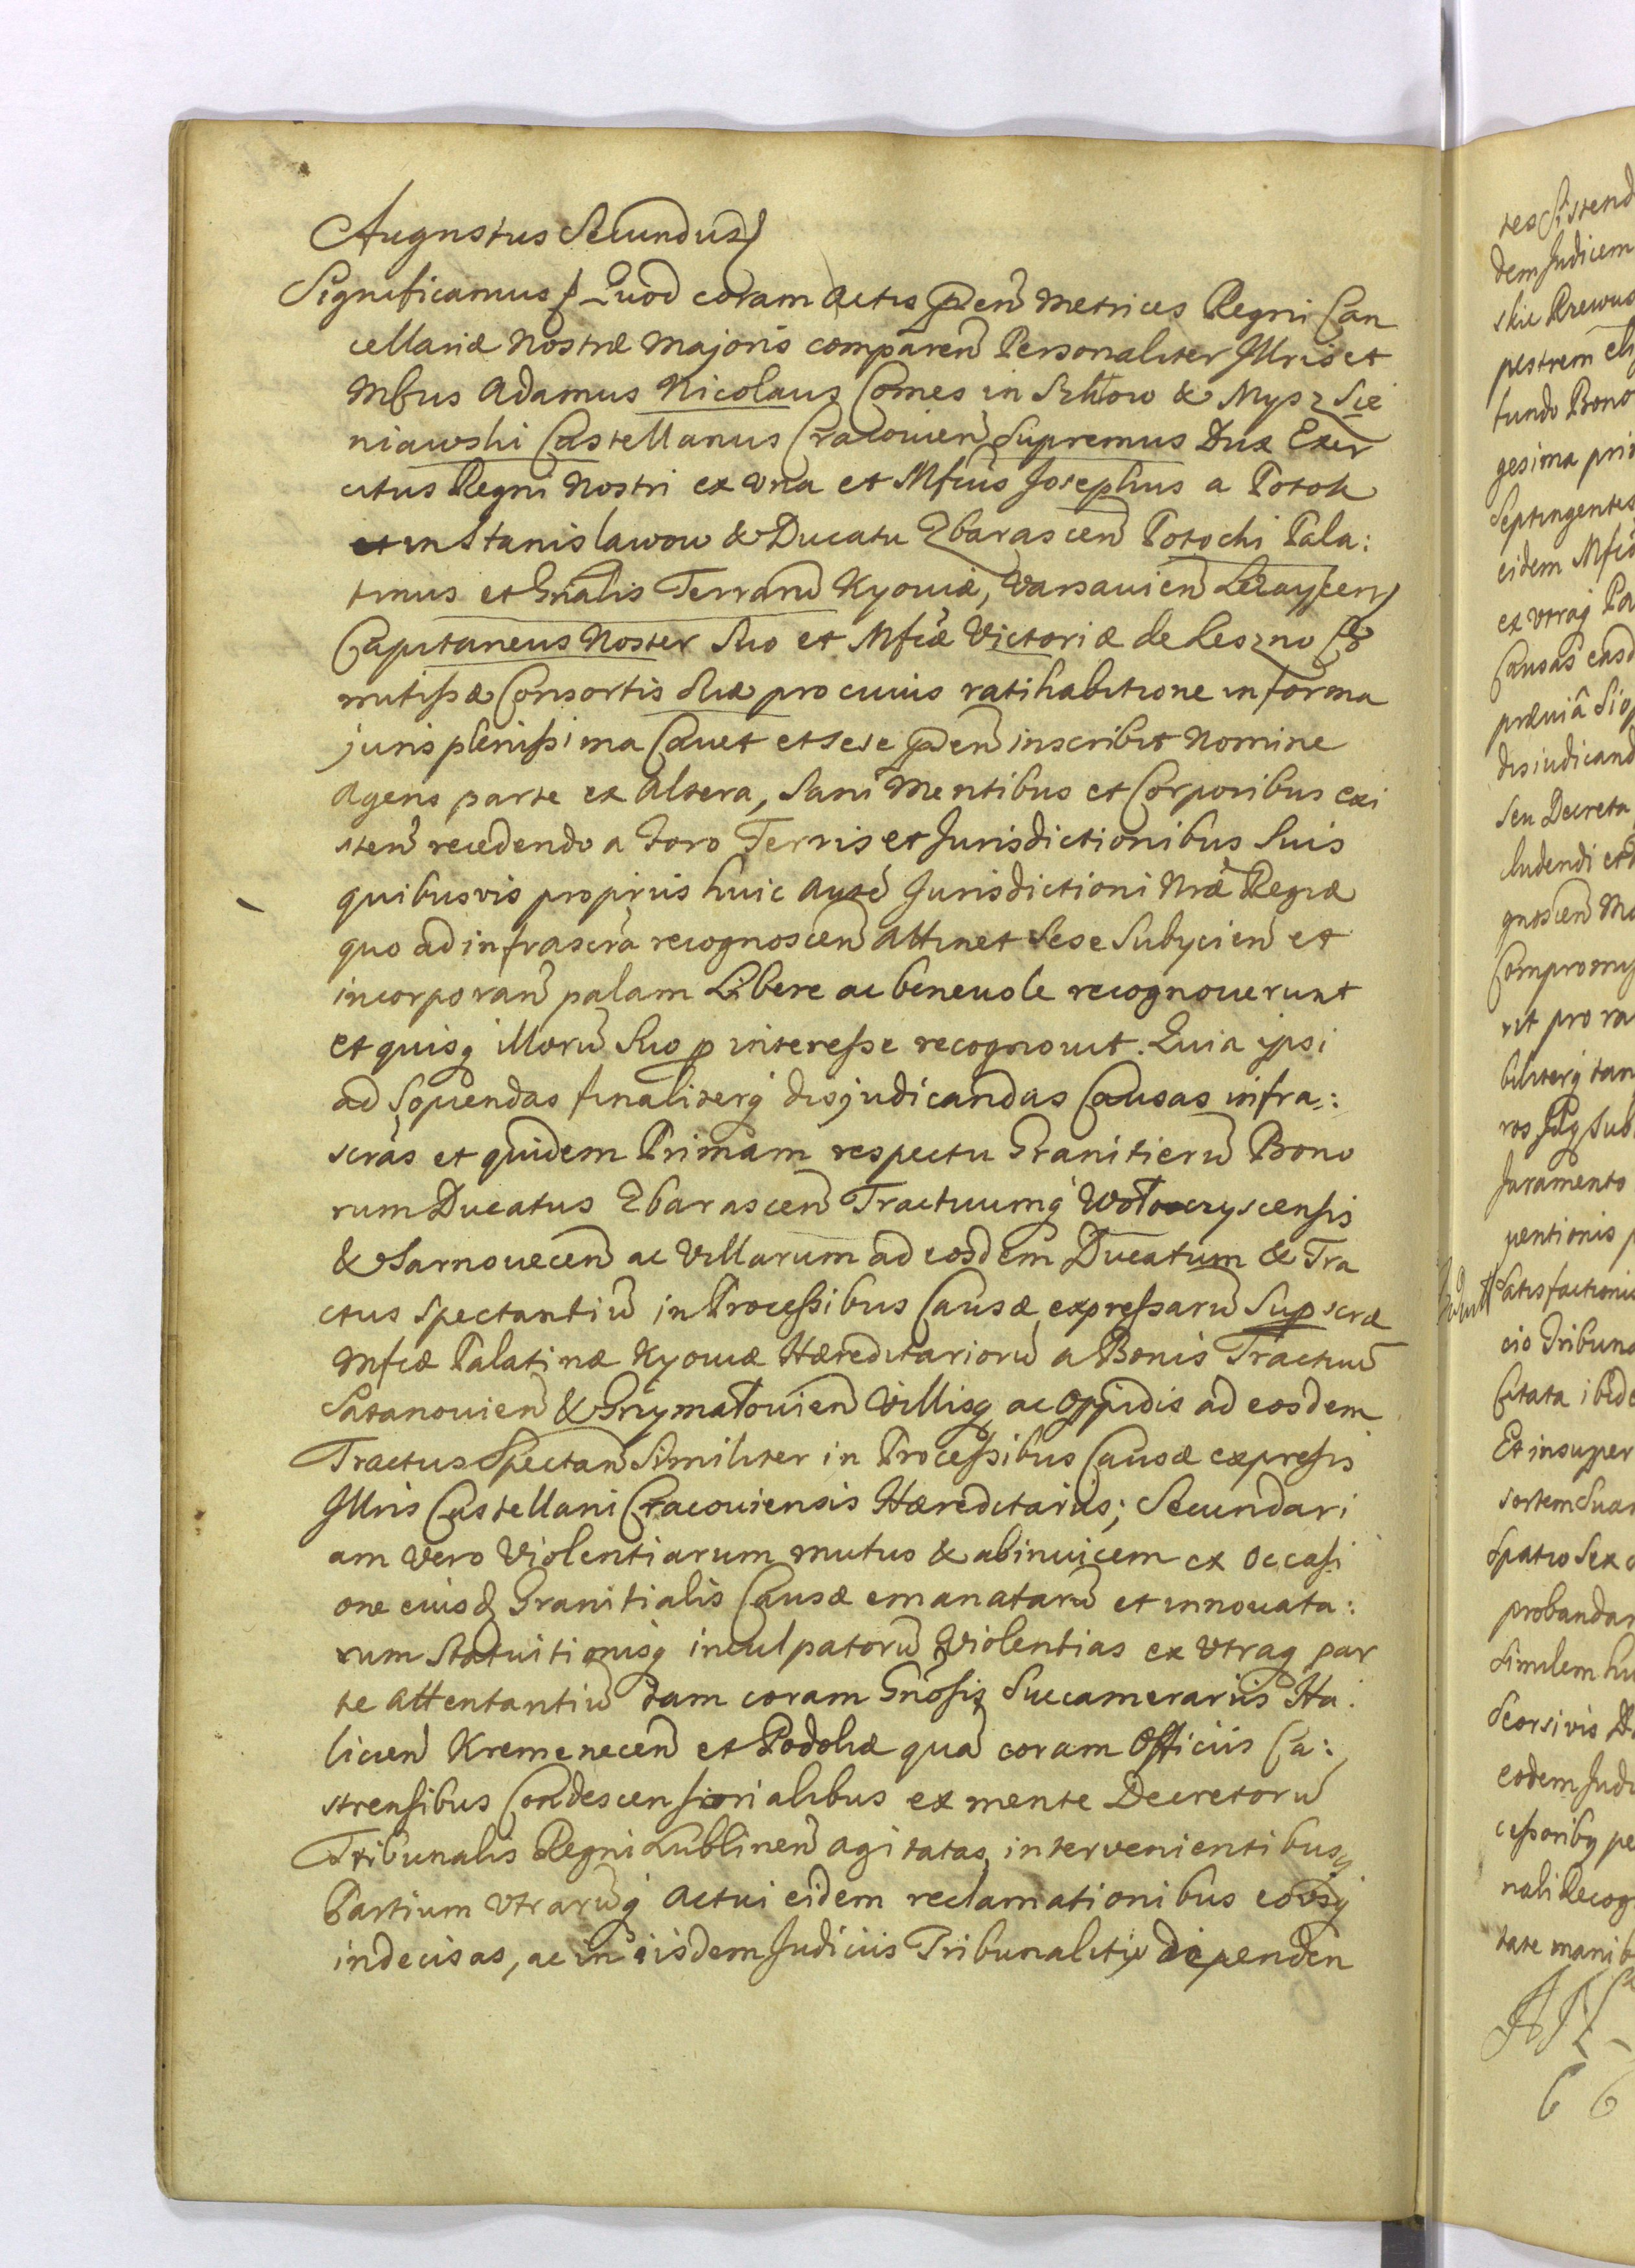 Augustus Secundus
Significamus Quod coram Actis pñ̃en Metrices Regni Can
cellariæ Nostræ Majoris comparen̄ Personaliter Jllris et
Mfcus Adamus Nicolaus Comes in Szkłow & Mysz Sie
niawski Castellanus Cracovien̄ Supremus Dux Exer
citus Regni Nostri ex una et Mfcus Josephus a Potok
et in Stanislawow & Ducatu Zbarascen̄ Potocki Pala:
tinus et Gnalis Terrarū Kyoviæ, Varsavien̄ Lezaÿscen̄
Capitaneus Noster Suo et Mfcæ Victoriæ de Leszno
mitissæ Consortis Suæ pro cuius ratihabitione in forma
juris plenissima Cavet et sese pñ̃en inscribit Nomine
Agens parte ex Altera, Sani Mentibus et Corporibus exi
sten̄ recedendo a Foro Terris et Jurisdictionibus Suis
quibusvis proprijs huic Autē Jurisdictioni Nræ Regiæ
quo ad infrascra recognoscen̄ Attinet Sese Subÿcien̄ et
incorporan̄ palam Libere ac benevole recognoverunt
et quisq illorū Suo p interesse recognovit. Quia ipsi
ad Sopiendas finaliterq disjudicandas Causas infra:
scras et quidem Primam respectu Granitierū Bono
rum Ducatus Zbarascen̄ Tractuumq Wołoczyscensis
& Sarnovecen̄ ac Villarum ad eosdem Ducatum & Tra
ctus Spectantiū in Processibus Causæ expressarū Supscræ
Mfcæ Palatinæ Kyoviæ Hæreditariorū a Bonis Tractuū
Satanovien̄ & Grzymałovien̄ Villisq ac Oppidis ad eosdem
Tractus Spectan̄ Similiter in Processibus Causæ expressis
Jllris Castellani Cracoviensis Hæreditarijs; Secundari
am Vero Violentiarum mutuo & abinvicem ex occasi
one eiusd Granitialis Causæ emanatarū et innovata:
rum Statuitionisq inculpatorū Violentias ex Utraq par
te Attentantiū tam coram Gnosis Succamerariis Ha:
licien̄ Kremenecen̄ et Podoliæ quā coram Officiis Ca:
strensibus Condescensionialibus ex mente Decretorū
Tribunalis Regni Lublinen̄ agitatas, intervenientibusq
Partium Utrarūq Actui eidem reclamationibus eousq
indecisas, ac in iisdem Judiciis Tribunalitiis dependen
tes Sistend
dem Judicem
skie Rzewus
pestrem
tundo Bono
gesima pri
Septingentes
eidem Mfcō
ex Utraq Pa
Causas easd
præviâ
disiudicand
Seu Decreta
ludendi et
gnoscen̄ Ma
Compromis
rit pro ra
biliterq tan
ros Sub
Juramento
ventionis p
Satisfactionis
cio Tribuna
Citata ibide
Et insuper
sortem Suam
Spatio Sex
probandam
Similem hu
Seorsivis
eodem Judi
cessoribq pe
nali Recog
tate manib